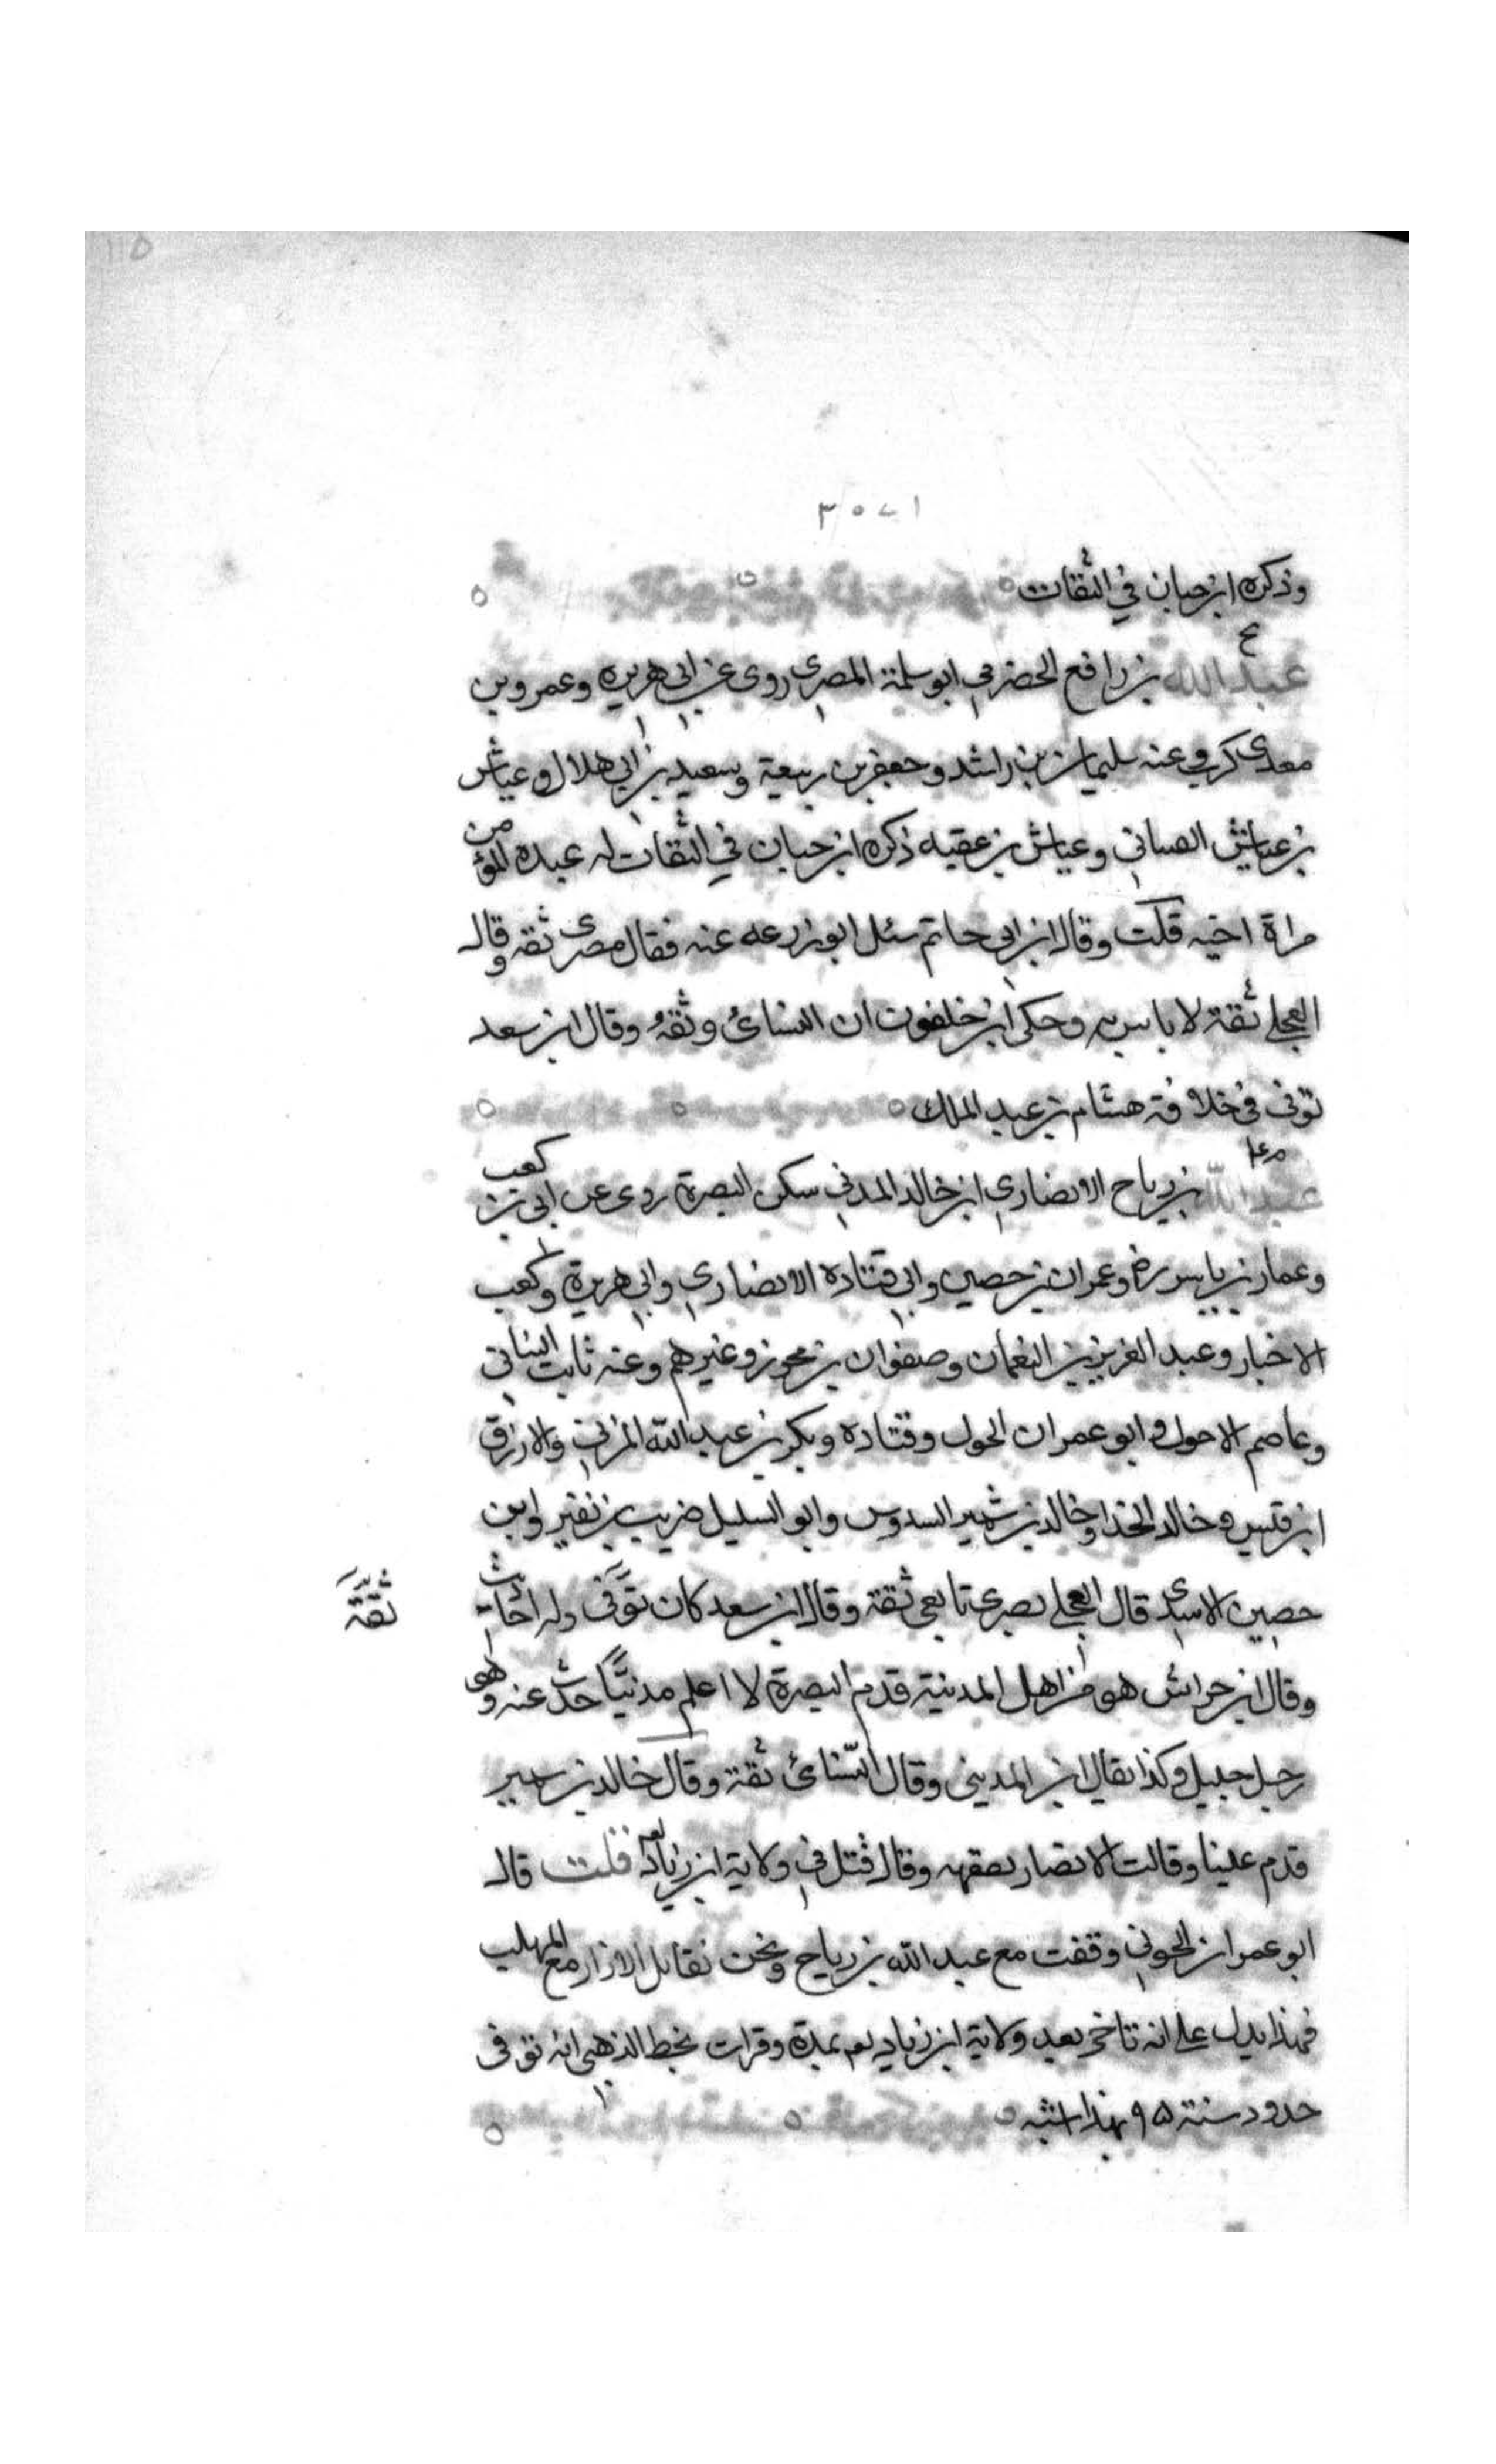 ١١٥
٣٠٧١
وذكره ابن حبان في الثقات
ع
عبد الله بن رافع الحضرمي ابو سلمة المصري روى عن ابي هريره وعمرو بن
معدي كرب وعنه سليمان بن راشد وجعفر بن ربيعة وسعيد بن ابي هلال وعياش
بن عياش وعياش بن عقبه ذكره ابن حبان في الثقات له عبده المؤمن
مراة اخيه قلت وقال ابن ابي حاتم سئل ابو زرعه عنه فقال مصري ثقه وقال
العجلي ثقة لا باس به وحكى ابن خلفون ان النسائي وثقه وقال ابن سعد
توفى في خلافة هشام بن عبد الملك
م ع
عبد الله بن رباح الانصاري ابن خالد المدني سكن البصرة روى عن ابي بن كعب
وعمار بن ياسر وعمران بن حصين وابي قتاده الانصاري وابي هريرة وكعب
الاخبار وعبد العزيز بن النعمان وصفوان بن محرز وغيرهم وعنه ثابت البناني
وعاصم الاحول وابو عمران الحول وقتاده وبكر بن عبد الله المزني والازرق
ابن قيس وخالد الحذا وخالد بن شمير السدوس وابو السليل ضريب بن نفير وابن
حصين الاسدي قال العجلي بصري تابعي ثقة وقال ابن سعد كان توفى وله احاديث
ثقة
وقال ابن حراش هو من اهل المدينة قدم البصرة لا اعلم مدنيًا حدث عنه وهو
رجل جليل وكذا يقال ابن المديني وقال النسائي ثقة وقال خالد بن سمير
قدم علينا وقالت الانصار بفقهه وقال قتل في ولاية ابن زياد قلت قال
ابو عمران الجوني وقفت مع عبد الله بن رباح ونحن نقاتل الازار مع المهلب
فهذا يدل على انه تاخر بعد ولاية ابن زياد بمدة وقرات بخط الذهبي انه توفى
حدود سنة ٩٥